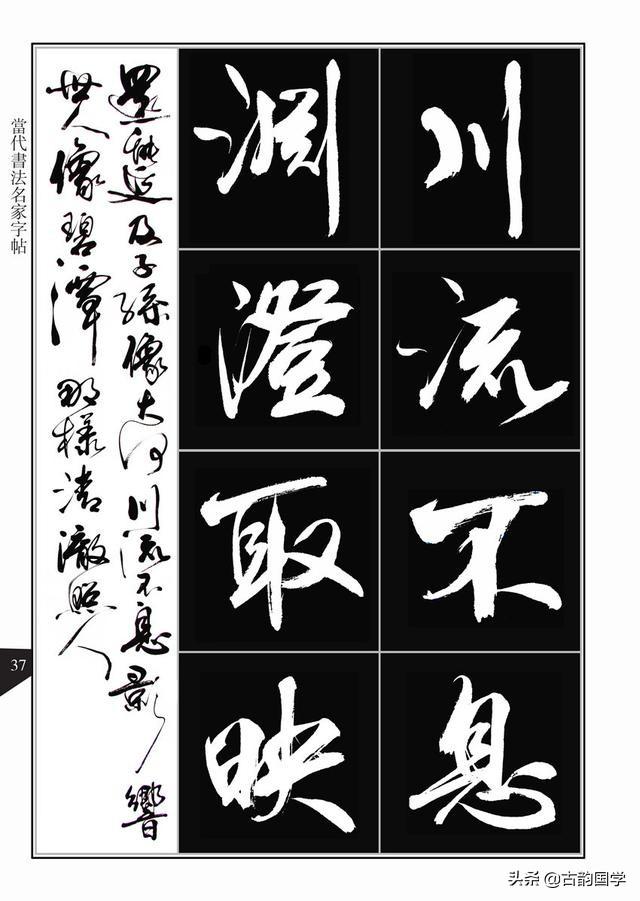 川流不息
淵澄取映
還能延及子孫像大河川流不息影響
世人像碧潭那樣清澈照人
當代書法名家字帖
37
头条 @古韵国学